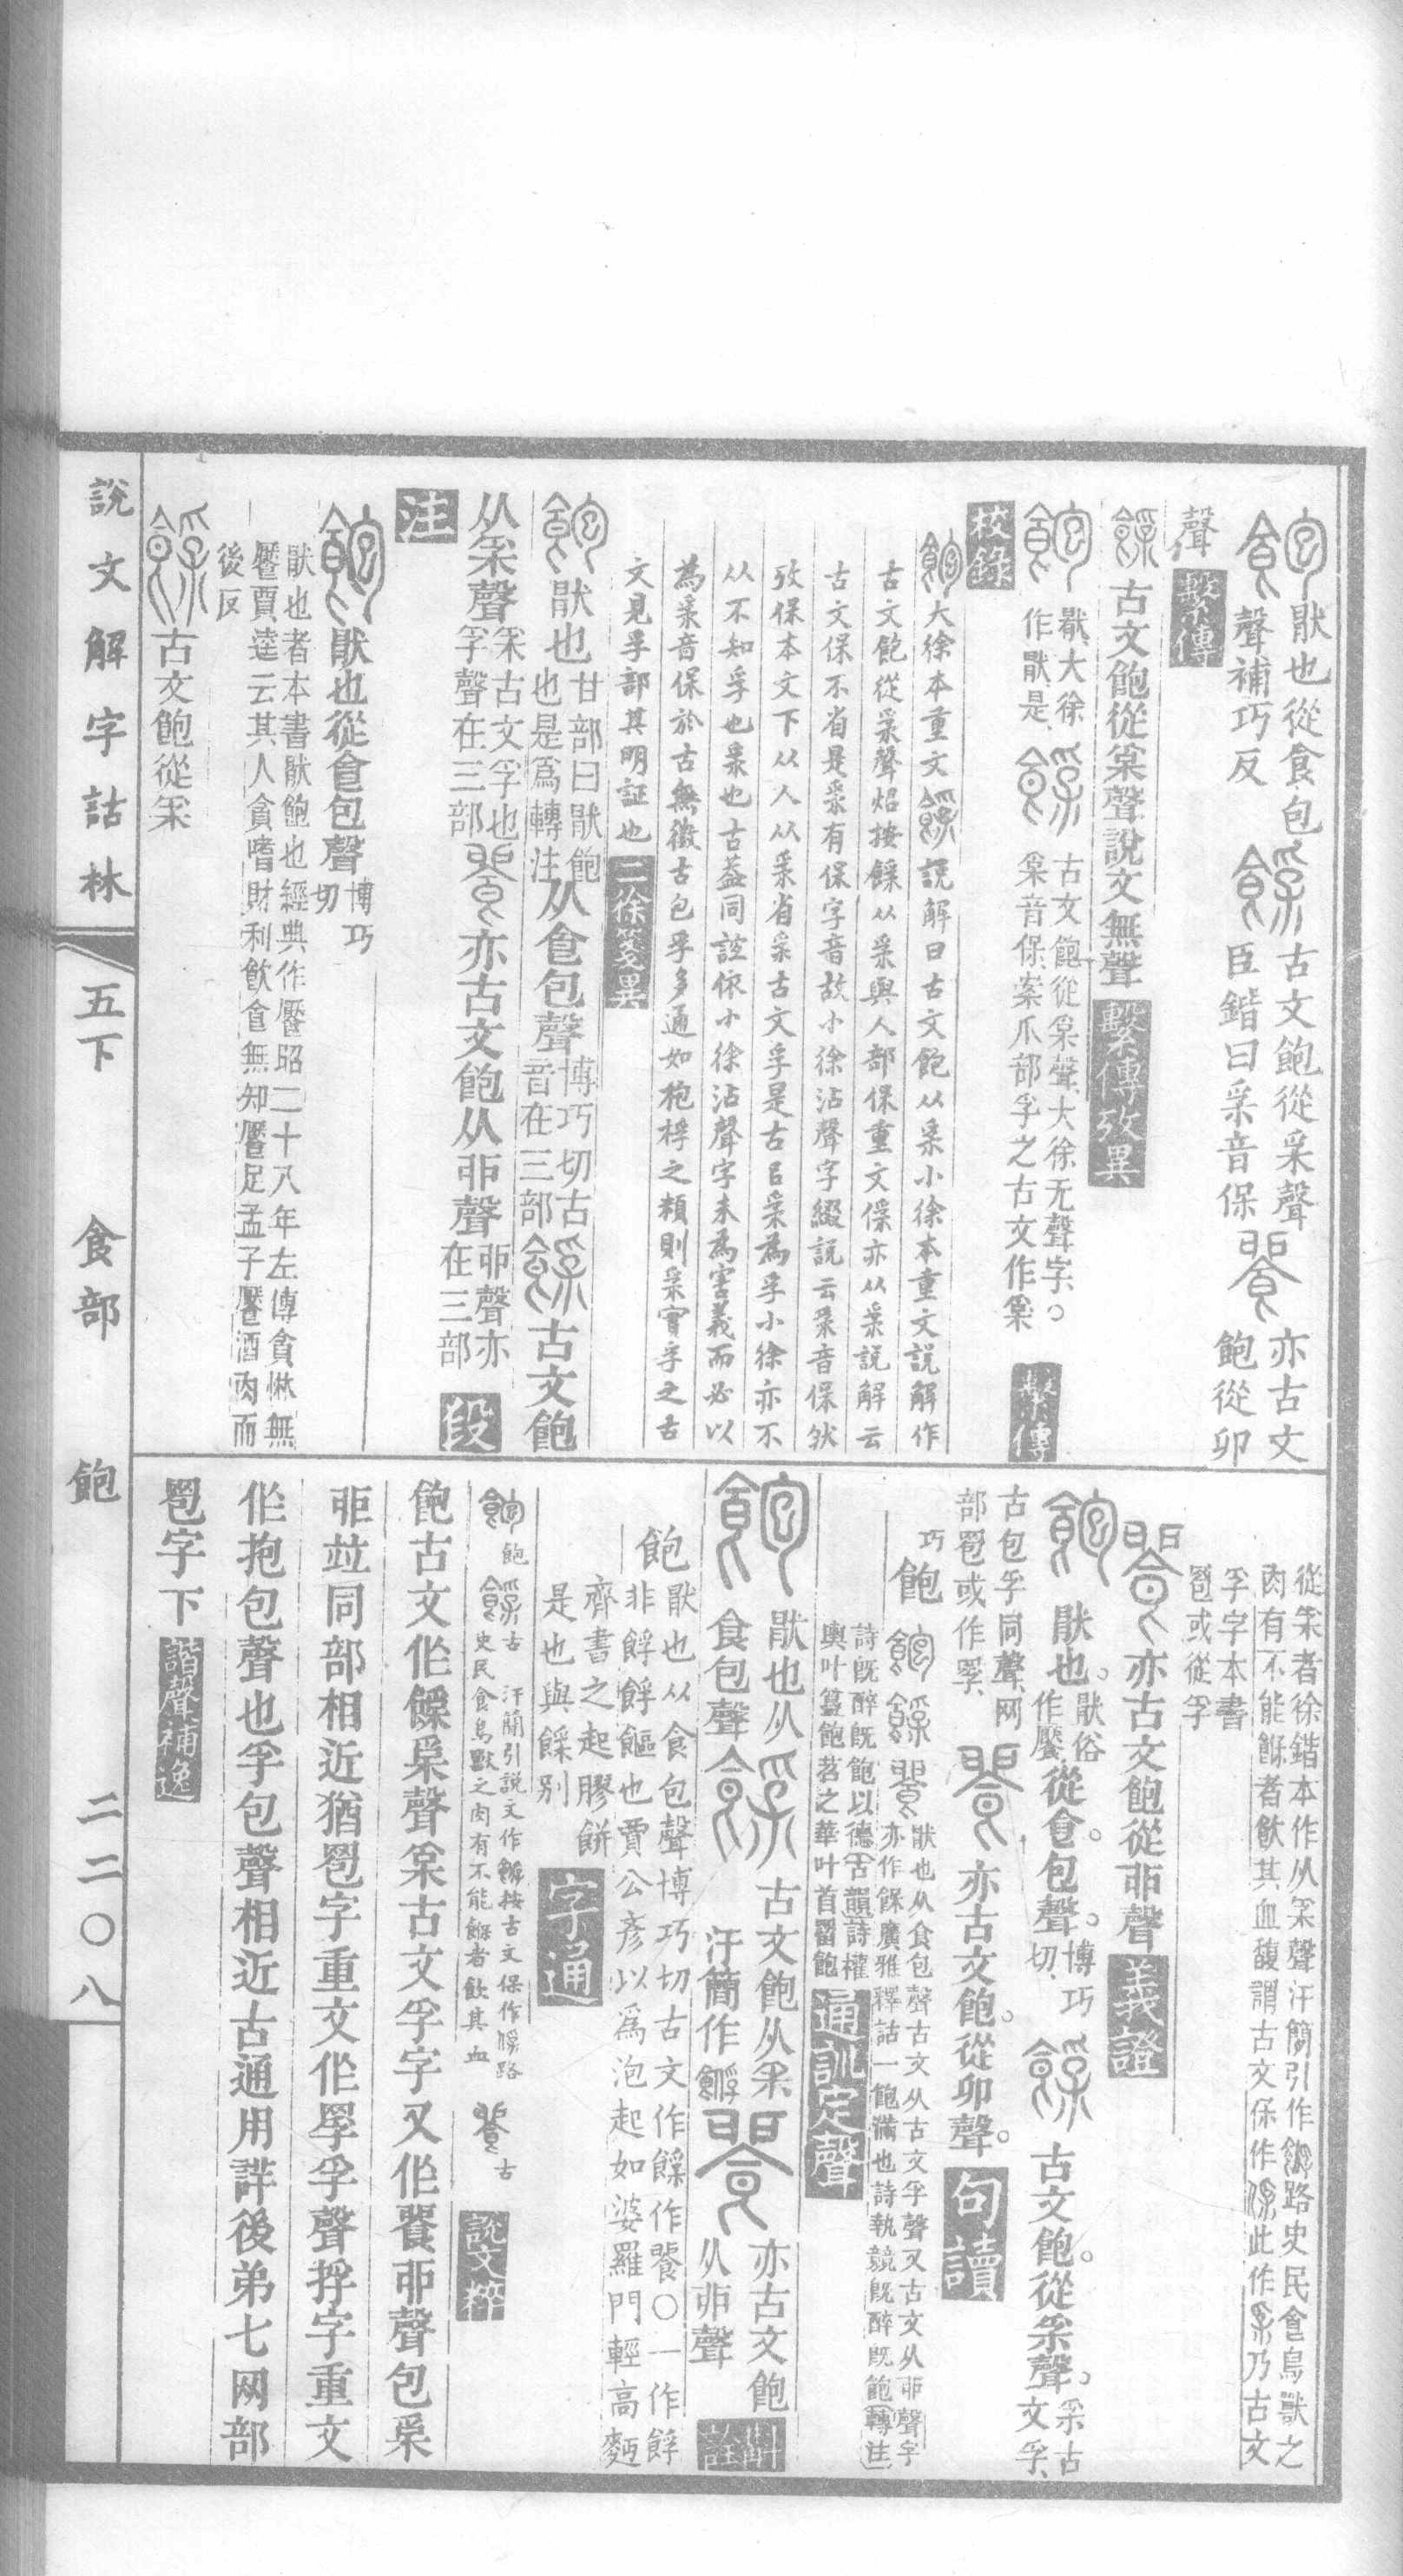 猒也從食包
聲補巧反
古文飽從𤓽聲
臣鍇曰𤓽音保
亦古文
飽從卯
聲
繫傳
古文飽從𤓽聲說文無聲
繫傳攷異
猒大徐
作猒是
古文飽從𤓽聲大徐无聲字。
𤓽音保案爪部孚之古文作𤓽
繫傳
校錄
大徐本重文
說解曰古文飽从𤓽小徐本重文說解作
古文飽從𤓽聲炤按𩛼从𤓽與人部保重文𠈃亦从𤓽說解云
古文保不省是𤓽有保字音故小徐沾聲字綴說云𤓽音保然
攷保本文下从人从𤓽省𤓽古文孚是古㠯𤓽為孚小徐亦不
从不知孚也𤓽也古葢同誼依小徐沾聲字未為害義而必以
為𤓽音保於古無徵古包孚多通如枹桴之類則𤓽實孚之古
文見孚部其明証也
二徐箋異
猒也
甘部曰猒飽
也是爲轉注
从𠊊包聲
博巧切古
音在三部
古文飽
从𤓽聲
𤓽古文孚也
孚聲在三部
亦古文飽从丣聲
丣聲亦
在三部
段
注
猒也從𠊊包聲
博巧
切
猒也者本書猒飽也經典作饜昭二十八年左傳貪惏無
饜賈逵云其人貪嗜財利飲𠊊無知饜足孟子饜酒肉而
後反
古文飽從𤓽
說文解字詁林
五下
食部
飽
二二〇八
從𤓽者徐鍇本作从𤓽聲汗簡引作
路史民𠊊鳥獸之
肉有不能餱者飲其血馥謂古文保作
此作
乃古文
孚字本書
䍖或從孚
亦古文飽從丣聲
義證
猒也。
猒俗
作饜
從𠊊。包聲。
博巧
切
古文飽。從𤓽聲。
𤓽古
文孚、
古包孚同聲、网
部䍖或作罦、
亦古文飽。從卯聲。
句讀
飽
巧
猒也从食包聲古文从古文孚聲又古文从丣聲字
亦作𩛼廣雅釋詁一飽滿也詩執競既醉既飽轉注
詩既醉既飽以德古韻詩權
輿叶簋飽苕之華叶首罶飽
通訓定聲
猒也从
食包聲
古文飽从𤓽
汗簡作
亦古文飽
从丣聲
斠
詮
飽
猒也从食包聲博巧切古文作𩛼作𩜿〇一作餑
非餑餑饇也賈公彥以爲泡起如婆羅門輕高麪
齊書之起膠餅
是也與𩛼別
字通
飽
古
汗簡引說文作
按古文保作
路
史民食鳥獸之肉有不能餱者飲其血
古
說文粹
飽古文作𩛼𤓽聲𤓽古文孚字又作𩜿丣聲包𤓽
丣竝同部相近猶䍖字重文作罦孚聲捊字重文
作抱包聲也孚包聲相近古通用詳後弟七网部
䍖字下
諧聲補逸